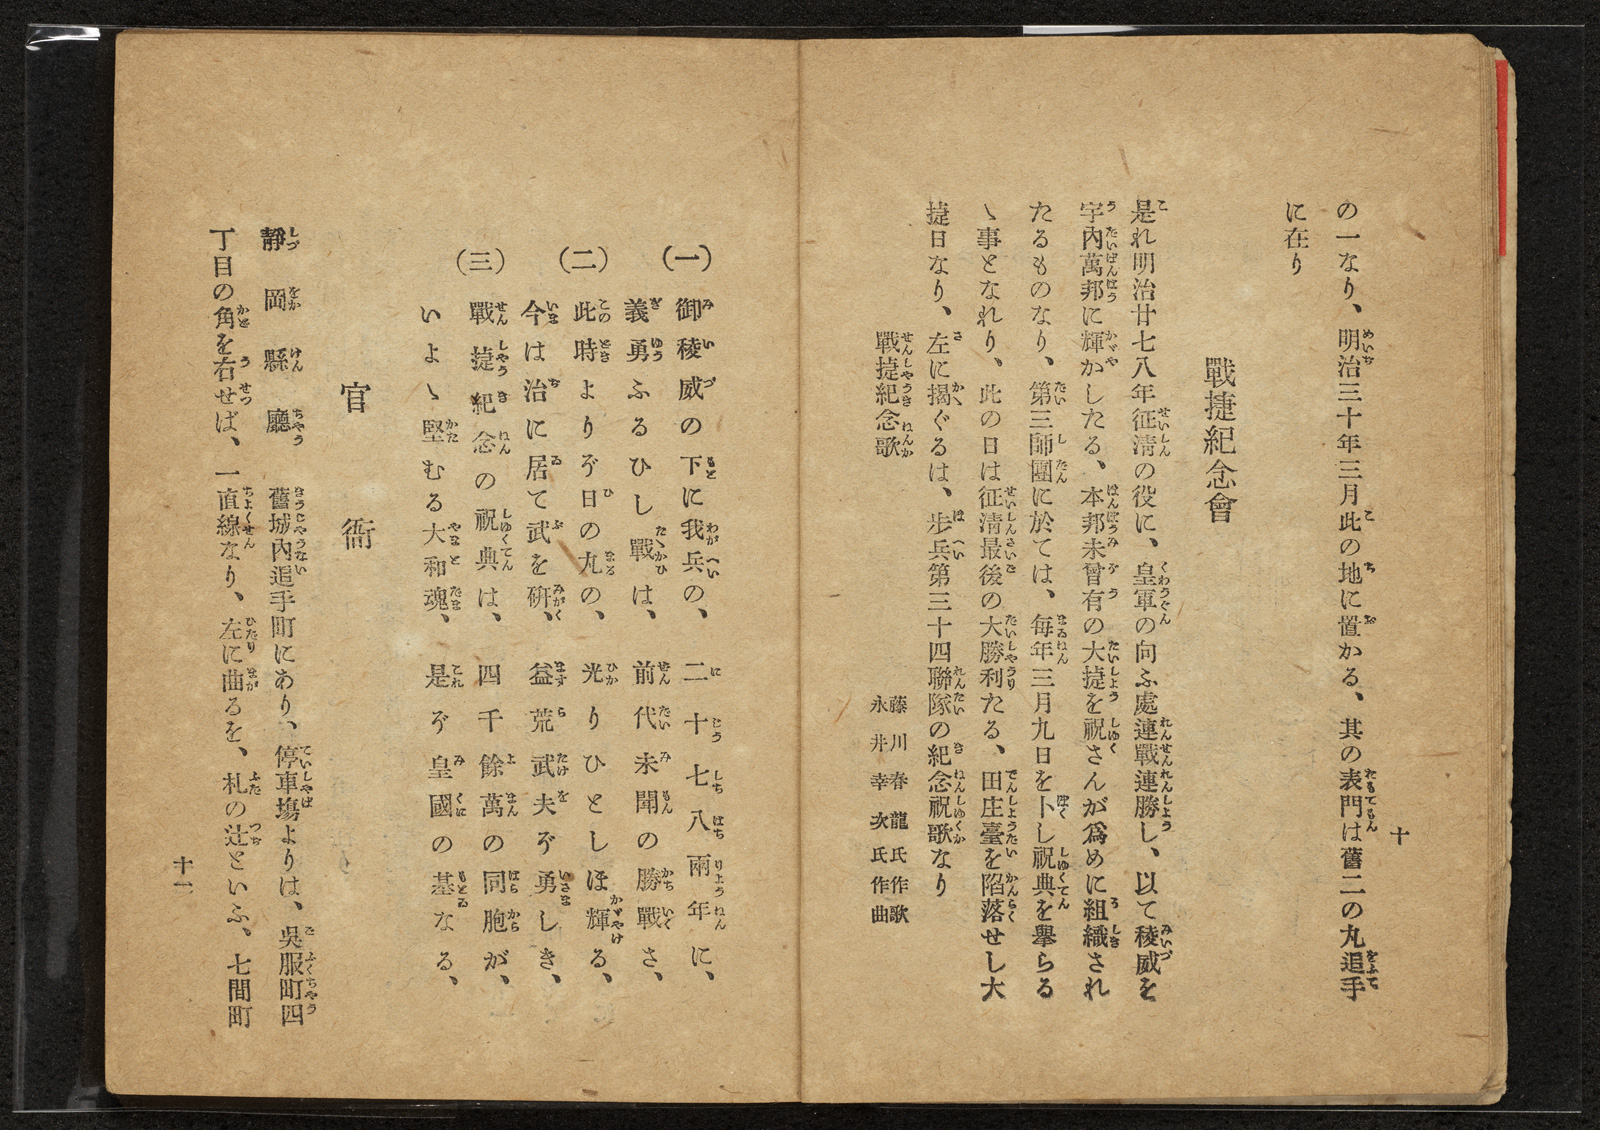 の一なり、明治三十年三月此の地に置かる、其の表門は舊二の丸追手
に在り
戰捷紀念會
是れ明治廿七八年征淸の役に、皇軍の向ふ處連戰連勝し、以て稜威を
宇內萬邦に輝かしたる、本邦未曾有の大捷を祝さんが爲めに組織され
たるものなり、第三師團に於ては、每年三月九日を卜し祝典を擧らる
ヽ事となれり、此の日は征淸最後の大勝利たる、田庄臺を陷落せし大
捷日なり、左に揭ぐるは、步兵第三十四聯隊の紀念祝歌なり
戰捷紀念歌
藤川春龍氏作歌
永井幸次氏作曲
十
(一)
御稜威の下に我兵の、二十七八兩年に、
義勇ふるひし戰は、前代未聞の勝戰さ、
(二)
此時よりぞ日の丸の、光りひとしほ輝る、
今は治に居て武を硏、益荒武夫ぞ勇しき、
(三)
戰捷紀念の祝典は、四千餘萬の同胞が、
いよヽ堅むる大和魂、是ぞ皇國の基なる、
官衙
靜岡縣廳 舊城內追手町にあり、停車塲よりは、吳服町四
丁目の角を右せば、一直線なり、左に曲るを、札の辻といふ、七間町
十一